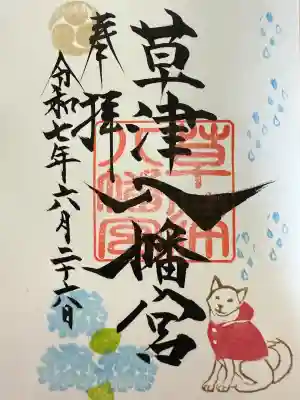 奉拝
草津八幡宮
令和七年六月二十六日
草津
八幡宮